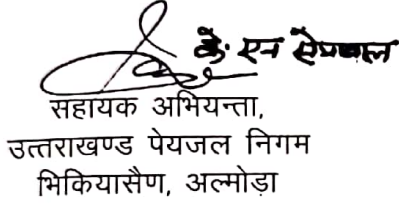 के. एन सेमवाल
सहायक अभियन्ता,
उत्तराखण्ड पेयजल निगम
भिकियासैण, अल्मोड़ा